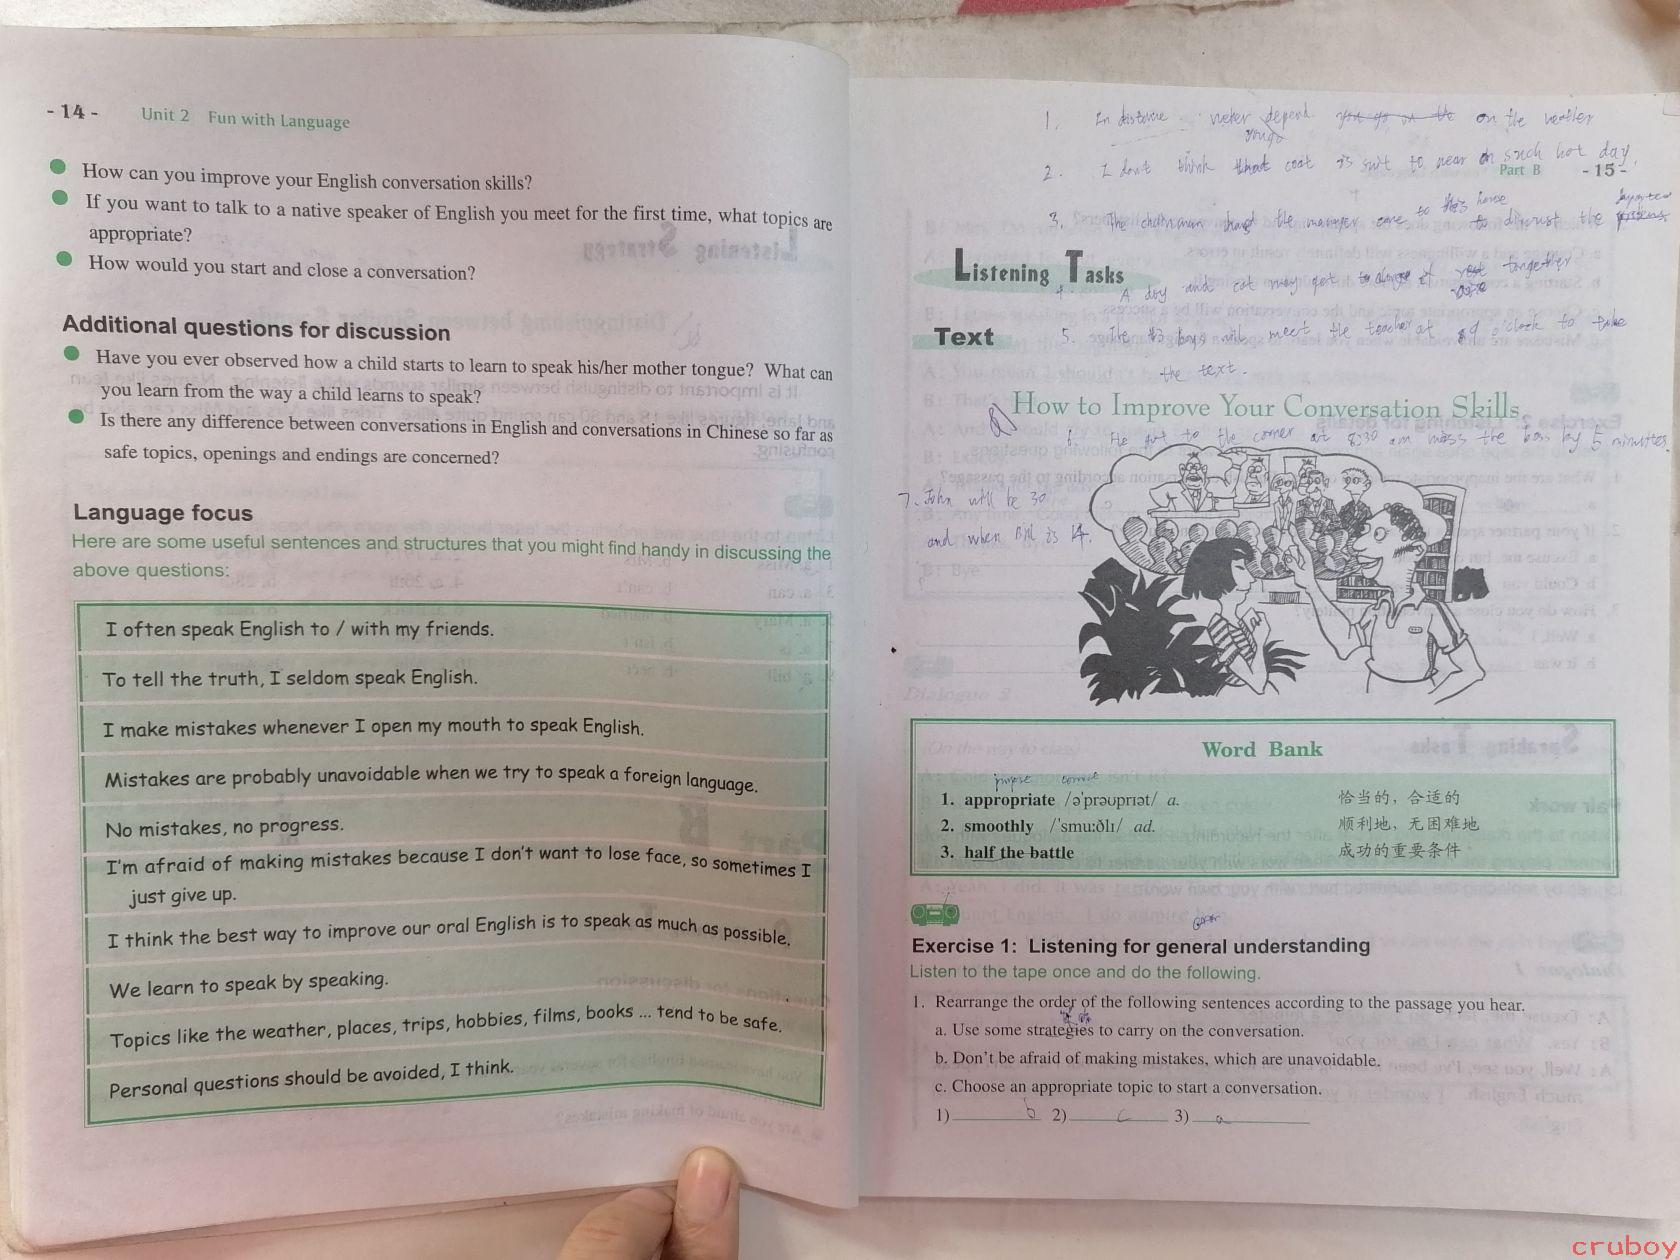 - 14 - Unit 2 Fun with Language
How can you improve your English conversation skills?
If you want to talk to a native speaker of English you meet for the first time, what topics are
appropriate?
How would you start and close a conversation?
Additional questions for discussion
Have you ever observed how a child starts to learn to speak his/her mother tongue? What can
you learn from the way a child learns to speak?
Is there any difference between conversations in English and conversations in Chinese so far as
safe topics, openings and endings are concerned?
Language focus
Here are some useful sentences and structures that you might find handy in discussing the
above questions:
I often speak English to / with my friends.
To tell the truth, I seldom speak English.
I make mistakes whenever I open my mouth to speak English.
Mistakes are probably unavoidable when we try to speak a foreign language.
No mistakes, no progress.
I'm afraid of making mistakes because I don't want to lose face, so sometimes I
just give up.
I think the best way to improve our oral English is to speak as much as possible.
We learn to speak by speaking.
Topics like the weather, places, trips, hobbies, films, books ... tend to be safe.
Personal questions should be avoided, I think.
1. In depend on the
2. I don't think coat is suit to on such hot day.
Part B - 15 -
3. The the to house to the
Listening Tasks
4. A dog and cat may get together
Text
5. The boys will meet the teacher at 9 o'clock to take
the text.
How to Improve Your Conversation Skills
6. He got to the corner at 8:30 am miss the bus by 5 minutes.
7. John will be 30
and when Bill is 14.
Word Bank
correct
1. appropriate /ə'prəʊprɪət/ a. 恰当的，合适的
2. smoothly /'smu:ðlɪ/ ad. 顺利地、无困难地
3. half the battle 成功的重要条件
Exercise 1: Listening for general understanding
Listen to the tape once and do the following.
1. Rearrange the order of the following sentences according to the passage you hear.
a. Use some strategies to carry on the conversation.
b. Don't be afraid of making mistakes, which are unavoidable.
c. Choose an appropriate topic to start a conversation.
1) b 2) c 3) a
cruboy